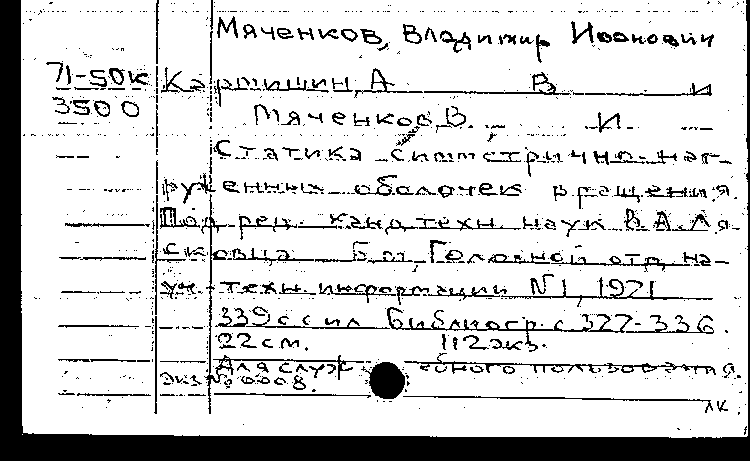 Мяченков, Владимир Иванович
71-50К Картишин, А В И
3500 Мяченков, В. И.
Статика симметрично наг-
руженных оболочек вращения.
Под ред. канд. техн. наук В.А. Ля
сковца Б.м., Головной отд. на-
уч.-техн. информации №1, 1971
339с с ил Библиогр. с 327-336.
22см. 112экз.
Для служебного пользования.
Экз № 0008.
ЛК